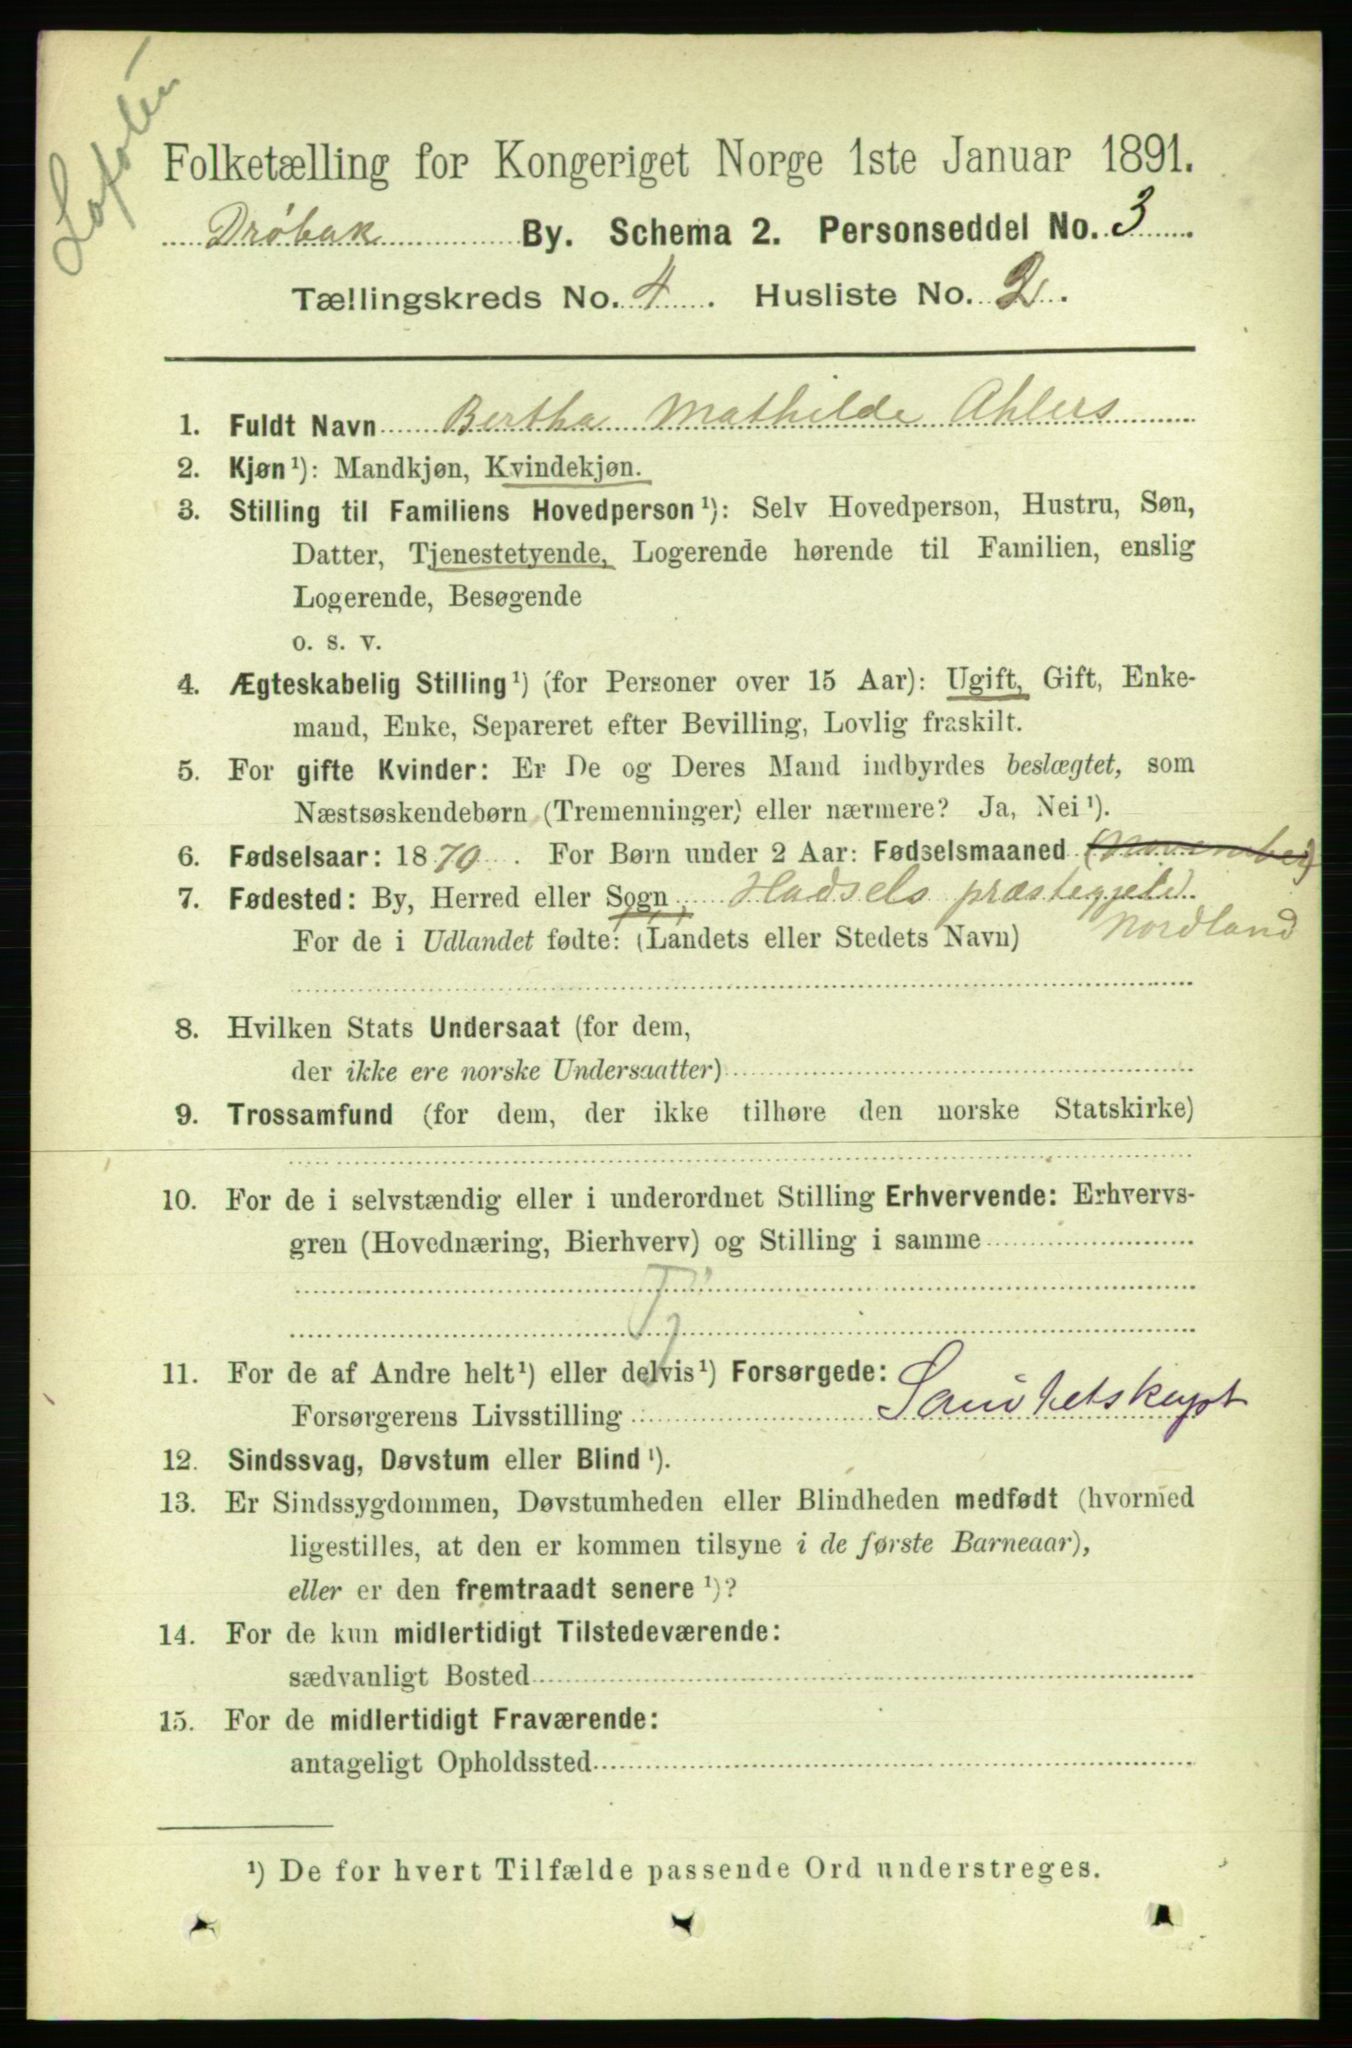 Lofoten
Folketælling for Kongeriget Norge 1ste Januar 1891.
Drøbak By. Schema 2. Personseddel No. 3.
Tællingskreds No. 4. Husliste No. 2.
1. Fuldt Navn Bertha Mathilde Ahlers
2. Kjøn ¹): Mandkjøn, Kvindekjøn.
3. Stilling til Familiens Hovedperson ¹): Selv Hovedperson, Hustru, Søn,
Datter, Tjenestetyende, Logerende hørende til Familien, enslig
Logerende, Besøgende
o. s. v.
4. Ægteskabelig Stilling ¹) (for Personer over 15 Aar): Ugift, Gift, Enke-
mand, Enke, Separeret efter Bevilling, Lovlig fraskilt.
5. For gifte Kvinder: Er De og Deres Mand indbyrdes beslægtet, som
Næstsøskendebørn (Tremenninger) eller nærmere? Ja, Nei ¹).
6. Fødselsaar: 1870. For Børn under 2 Aar: Fødselsmaaned (November)
7. Fødested: By, Herred eller Sogn Hadsels præstegjeld.
For de i Udlandet fødte: (Landets eller Stedets Navn) Nordland
8. Hvilken Stats Undersaat (for dem,
der ikke ere norske Undersaatter)
9. Trossamfund (for dem, der ikke tilhøre den norske Statskirke)
10. For de i selvstændig eller i underordnet Stilling Erhvervende: Erhvervs-
gren (Hovednæring, Bierhverv) og Stilling i samme
Tj
11. For de af Andre helt ¹) eller delvis ¹) Forsørgede:
Forsørgerens Livsstilling
12. Sindssvag, Døvstum eller Blind ¹).
13. Er Sindssygdommen, Døvstumheden eller Blindheden medfødt (hvormed
ligestilles, at den er kommen tilsyne i de første Barneaar),
eller er den fremtraadt senere ¹)?
14. For de kun midlertidigt Tilstedeværende:
sædvanligt Bosted
15. For de midlertidigt Fraværende:
antageligt Opholdssted
¹) De for hvert Tilfælde passende Ord understreges.